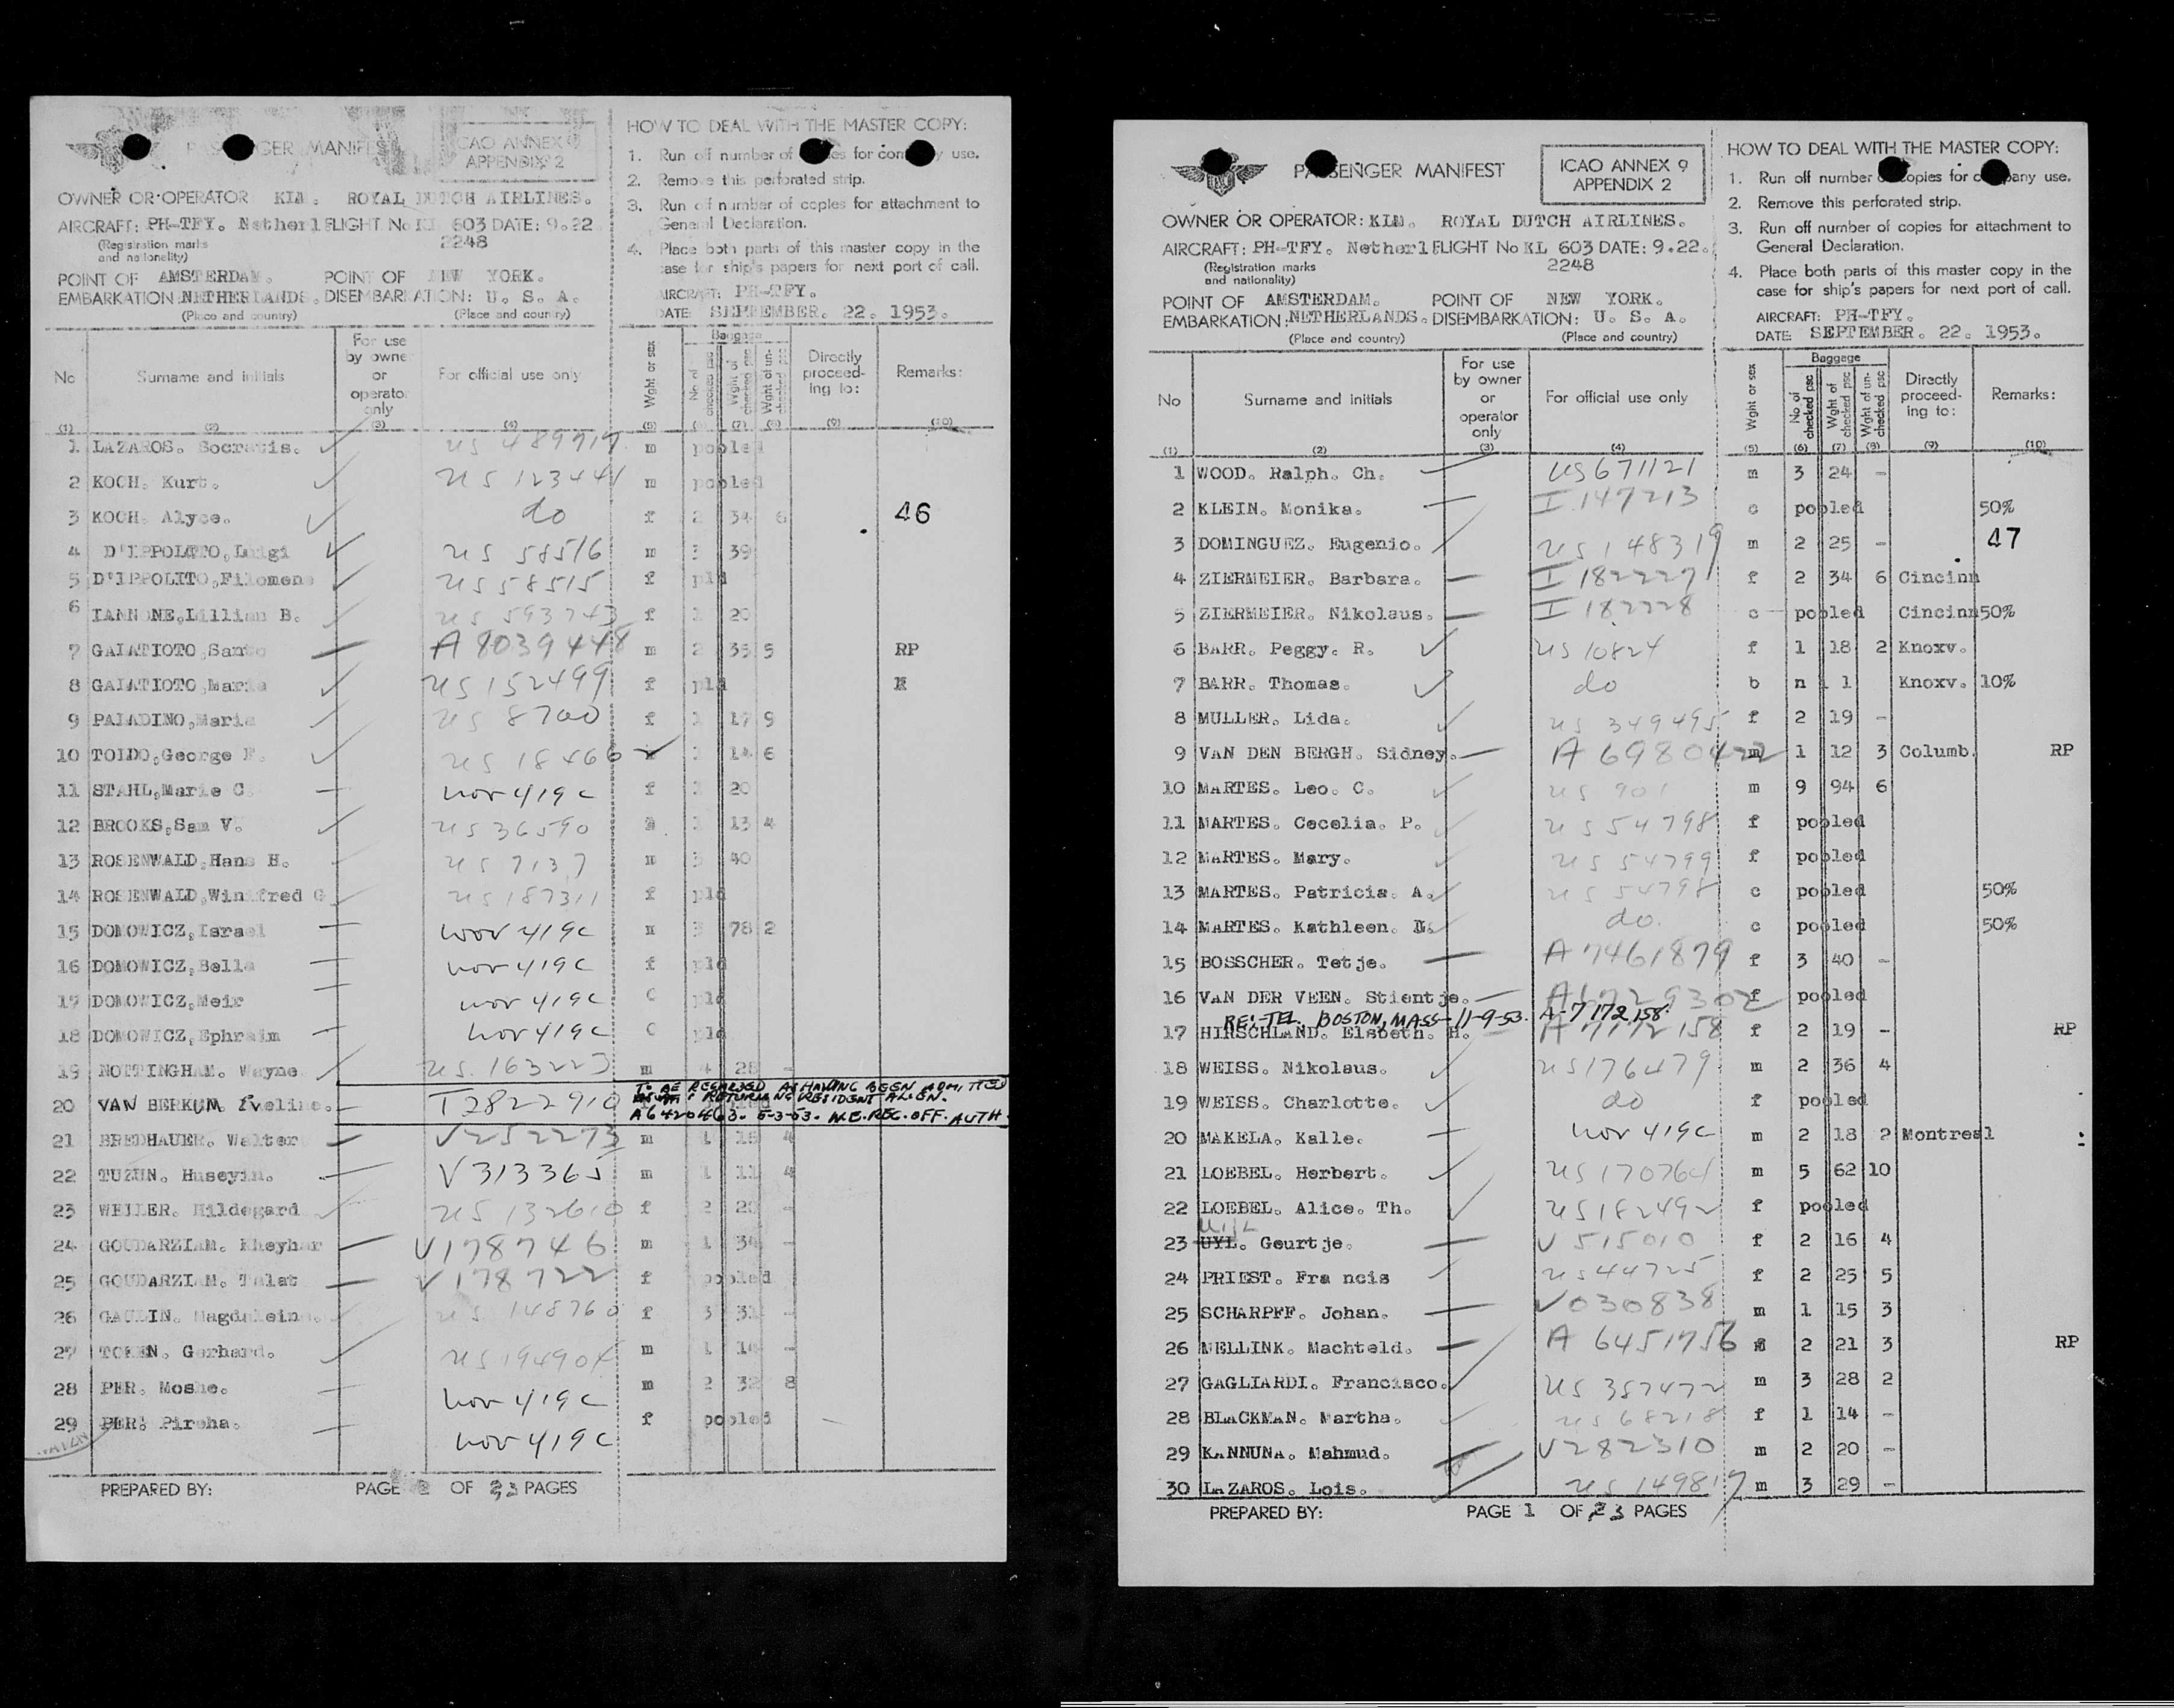 PASSENGER MANIFEST
ICAO ANNEX 9
APPENDIX 2
OWNER OR OPERATOR KLM. ROYAL DUTCH AIRLINES.
AIRCRAFT: PH-TFY. Netherl FLIGHT No KL 603 DATE: 9.22.
(Registration marks and nationality) 2248
POINT OF EMBARKATION: AMSTERDAM. NETHERLANDS. POINT OF DISEMBARKATION: NEW YORK. U. S. A.
(Place and country) (Place and country)
HOW TO DEAL WITH THE MASTER COPY:
1. Run off number of copies for company use.
2. Remove this perforated strip.
3. Run of number of copies for attachment to General Declaration.
4. Place both parts of this master copy in the case for ship's papers for next port of call.
AIRCRAFT: PH-TFY.
DATE: SEPTEMBER. 22. 1953.
No Surname and initials For use by owner or operator only For official use only Wght or sex Baggage No of checked psc Wght of checked psc Wght of un-checked psc Directly proceed-ing to: Remarks:
(1) (2) (3) (4) (5) (6) (7) (8) (9) (10)
1 LAZAROS. Socratis. ✓ US 489717 m pooled
2 KOCH. Kurt. ✓ US 123441 m pooled
3 KOCH. Alyce. ✓ do f 2 34 6 46
4 D'IPPOLITO,Luigi ✓ US 58516 m 3 39
5 D'IPPOLITO,Filomena ✓ US 58515 f pld
6 IANNONE,Lillian B. ✓ US 593743 f 1 20
7 GALATIOTO,Santo — A 8039448 m 2 35 5 RP
8 GALATIOTO,Maria ✓ US 152499 f pld
9 PALADINO,Maria ✓ US 8700 f 1 17 9
10 TOIDO,George F. ✓ US 18466 ✓ 1 14 6
11 STAHL,Marie C — nor 419c f 1 20
12 BROOKS,Sam V. ✓ US 36590 1 13 4
13 ROSENWALD,Hans H. ✓ US 7137 m 3 40
14 ROSENWALD,Winifred G ✓ US 187311 f pld
15 DOMOWICZ,Israel — nor 419c m 3 78 2
16 DOMOWICZ,Bella — nor 419c f pld
17 DOMOWICZ,Meir — nor 419c C pld
18 DOMOWICZ,Ephraim — nor 419c C pld
19 NOTTINGHAM. Wayne ✓ US. 163223 m 4 28 -
20 VAN BERKUM. Eveline. — T2822910 TO BE REGARDED AS HAVING BEEN ADMITTED
RETURNING RESIDENT ALIEN.
A6420463. 5-3-53. N.E. REC. OFF. AUTH.
21 BREDHAUER. Walter — V252273 m 1 18 4
22 TUZUN. Huseyin. — V313365 m 1 11 4
23 WEILER. Hildegard ✓ US 132610 f 2 20 -
24 GOUDARZIAM. Kheyhar — V178746 m 1 34 -
25 GOUDARZIAM. Talat — V178722 f pooled
26 GAULIN. Magdaleine. ✓ US 148760 f 3 31 -
27 TOKEN. Gerhard. ✓ US 194904 m 1 16 -
28 PER. Moshe. — nor 419c m 2 32 8
29 PER. Pireha. — nor 419c f pooled
PREPARED BY: PAGE 2 OF 3 PAGES
PASSENGER MANIFEST
ICAO ANNEX 9
APPENDIX 2
OWNER OR OPERATOR: KLM. ROYAL DUTCH AIRLINES.
AIRCRAFT: PH-TFY. Netherl FLIGHT No KL 603 DATE: 9.22.
(Registration marks and nationality) 2248
POINT OF EMBARKATION: AMSTERDAM. NETHERLANDS. POINT OF DISEMBARKATION: NEW YORK. U. S. A.
(Place and country) (Place and country)
HOW TO DEAL WITH THE MASTER COPY:
1. Run off number of copies for company use.
2. Remove this perforated strip.
3. Run off number of copies for attachment to General Declaration.
4. Place both parts of this master copy in the case for ship's papers for next port of call.
AIRCRAFT: PH-TFY.
DATE: SEPTEMBER. 22. 1953.
No Surname and initials For use by owner or operator only For official use only Wght or sex Baggage No of checked psc Wght of checked psc Wght of un-checked psc Directly proceed-ing to: Remarks:
(1) (2) (3) (4) (5) (6) (7) (8) (9) (10)
1 WOOD. Ralph. Ch. ✓ US 671121 m 3 24 -
2 KLEIN. Monika. — I 147213 c pooled 50%
3 DOMINGUEZ. Eugenio. ✓ US 148319 m 2 25 - 47
4 ZIERMEIER. Barbara. — I 182227 f 2 34 6 Cincinn
5 ZIERMEIER. Nikolaus. — I 182228 c pooled Cincinn 50%
6 BARR. Peggy. R. ✓ US 10824 f 1 18 2 Knoxv.
7 BARR. Thomas. ✓ do b n i 1 Knoxv. 10%
8 MULLER. Lida. ✓ US 349495 f 2 19 -
9 VAN DEN BERGH. Sidney. — A 6980422 m 1 12 3 Columb. RP
10 MARTES. Leo. C. ✓ US 901 m 9 94 6
11 MARTES. Cecelia. P. ✓ US 54798 f pooled
12 MARTES. Mary. ✓ US 54799 f pooled
13 MARTES. Patricia. A. ✓ US 54798 c pooled 50%
14 MARTES. Kathleen. ✓ do. c pooled 50%
15 BOSSCHER. Tetje. — A 7461879 f 3 40 -
16 VAN DER VEEN. Stientje. — A6729302 f pooled
RE:-TEL. BOSTON, MASS-11-9-53. A-7172158.
17 HIRSCHLAND. Elsbeth. H. — A 7172158 f 2 19 - RP
18 WEISS. Nikolaus. ✓ US 176479 m 2 36 4
19 WEISS. Charlotte. ✓ do f pooled
20 MAKELA. Kalle. — nor 419c m 2 18 2 Montreal
21 LOEBEL. Herbert. ✓ US 170764 m 5 62 10
22 LOEBEL. Alice. Th. ✓ US 182492 f pooled
23 UYL. Geurtje. — V 515010 f 2 16 4
24 PRIEST. Francis ✓ US 44725 f 2 25 5
25 SCHARPFF. Johan. — V030838 m 1 15 3
26 MELLINK. Machteld. — A 6451756 f 2 21 3 RP
27 GAGLIARDI. Francisco. ✓ US 357472 m 3 28 2
28 BLACKMAN. Martha. ✓ US 68218 f 1 14 -
29 KANNUNA. Mahmud. — V282310 m 2 20 -
30 LAZAROS. Lois. ✓ US 149817 m 3 29 -
PREPARED BY: PAGE 1 OF 3 PAGES